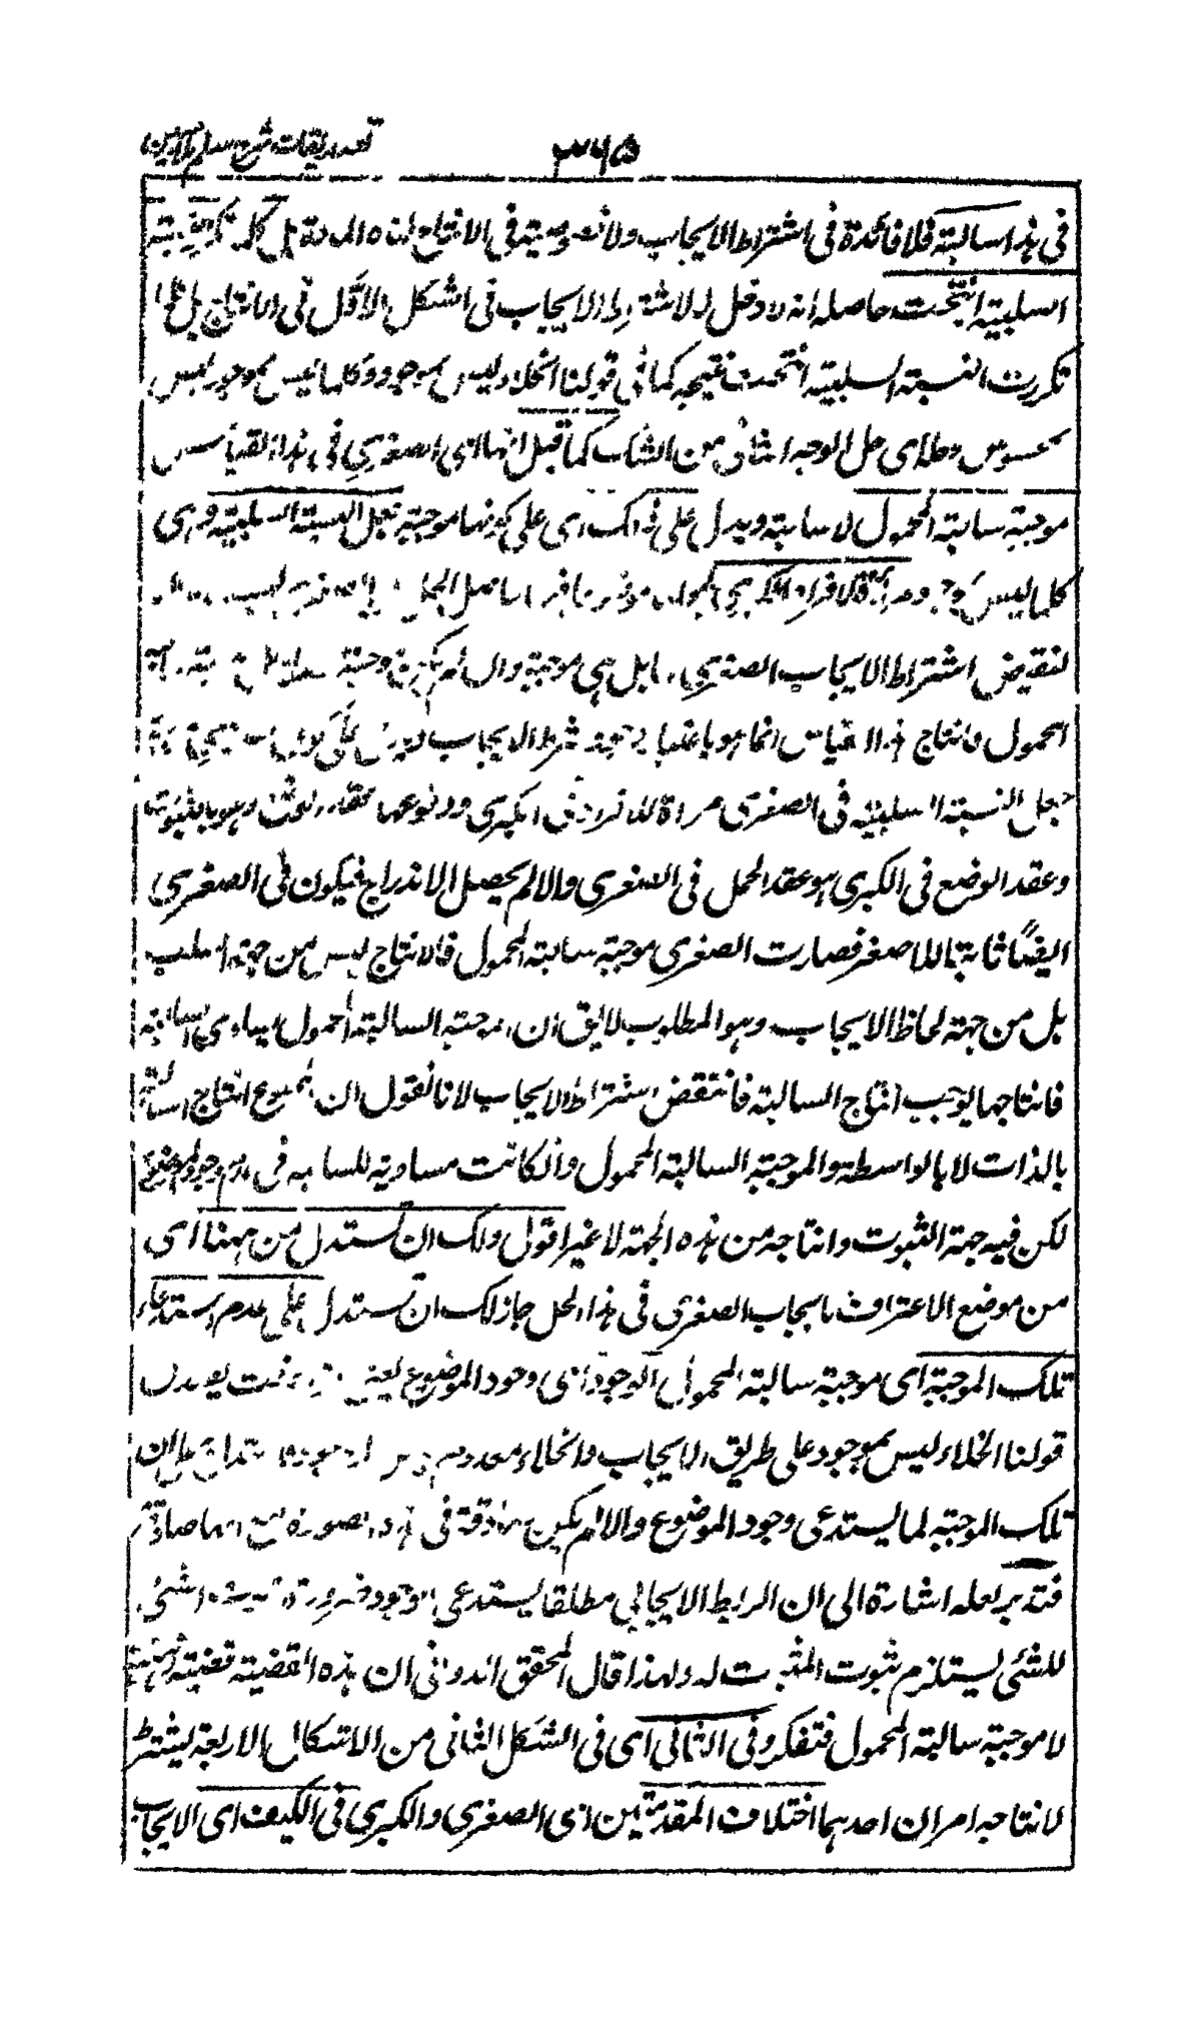 تصديقات شرح سلم لملا مبين
٣٦٥
فى هذا سالبته فلا فائدة فى اشتراط الايجاب ولا خصوصية فى الانتاج لهذه المادة بل كلما تكررت النسبة
السلبية انتجت حاصله انه لا دخل لاشتراط الايجاب فى الشكل الاول فى الانتاج بل كلما
تكررت النسبة السلبية انتجت نتيجة كما فى قولنا الخلاء ليس بموجود وكلما ليس بموجود ليس
بمحسوس وحله اى حل الوجه الثانى من الشك كما قيل انها اى الصغرى فى هذا القياس
موجبة سالبة المحمول لا سالبة ويدل على ذلك اى على كونها موجبة جعل النسبة السلبية وهى
كلما ليس مرآة لافراد الكبرى
لنقيض اشتراط الايجاب الصغرى بل هى موجبة وان لم يكن موجبة
المحمول وانتاج هذا القياس انما هو باعتبار شرط الايجاب
جعل النسبة السلبية فى الصغرى مرآة للافراد فى الكبرى ووقوعها
وعقد الوضع فى الكبرى هو عقد الحمل فى الصغرى والا لم يحصل الاندراج فيكون فى الصغرى
ايضا ثابتا للاصغر فصارت الصغرى موجبة سالبة المحمول فالانتاج ليس من جهة السلب
بل من جهة لحاظ الايجاب وهو المطلوب لا يق ان موجبة السالبة المحمول يساوى السالبة
فانتاجها يوجب انتاج السالبة فانتقض اشتراط الايجاب لانا نقول ان الممنوع انتاج السالبة
بالذات لا بالواسطه والموجبة السالبة المحمول وان كانت مساوية للسالبه فى
لكن فيه جهة الثبوت وانتاجه من هذه الجهة لا غير اقول ولك ان تستدل من ههنا اى
من موضع الاعتراف بايجاب الصغرى فى هذا الحل جاز لك ان تستدل على عدم استدعاء
تلك الموجبة اى موجبة سالبة المحمول الوجود اى وجود الموضوع
قولنا الخلاء ليس بموجود على طريق الايجاب والخلاء معدوم
تلك الموجبة لما يستدعى وجود الموضوع والا لم يكن صادقة فى هذه الصورة مع انها صادقة
فتدبر لعله اشارة الى ان الربط الايجابى مطلقا يستدعى الوجود ضرورة الشئ
للشئ ليستلزم ثبوت المثبت له ولهذا قال المحقق الدوانى ان هذه القضية قضية ذهنية
لا موجبة سالبة المحمول فتفكر وفى الثانى اى فى الشكل الثانى من الاشكال الاربعة ليشترط
لانتاجه امران احدهما اختلاف المقدمتين اى الصغرى والكبرى فى الكيف اى الايجاب